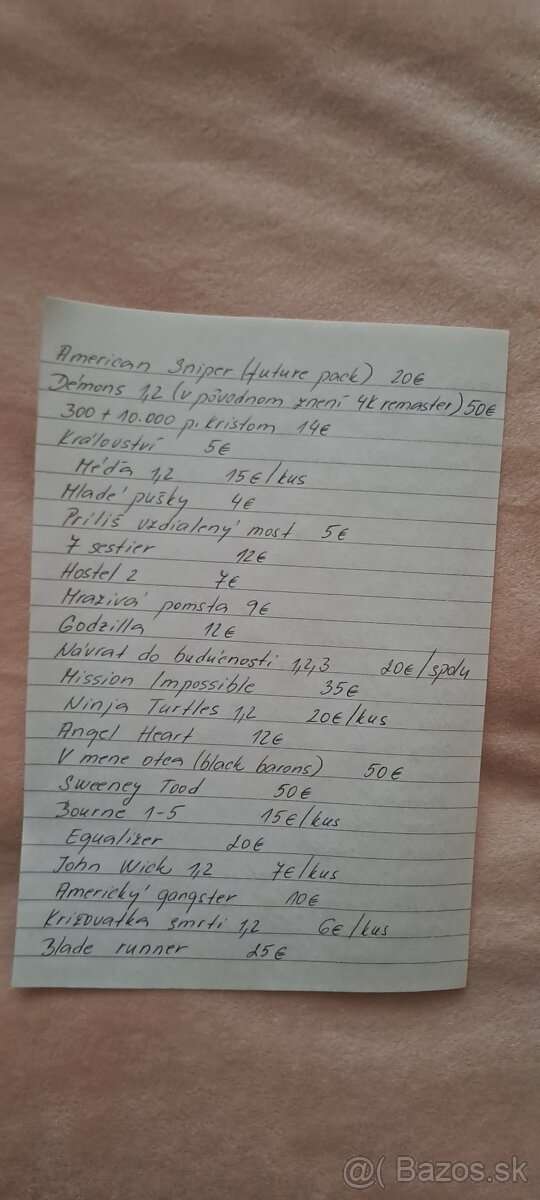 American Sniper (future pack) 20€
Démons 1,2 (v pôvodnom znení 4K remaster) 50€
300 + 10.000 p. Kristom 14€
Království 5€
Méďa 1,2 15€/kus
Mladé pušky 4€
Príliš vzdialený most 5€
7 sestier 12€
Hostel 2 7€
Mrazivá pomsta 9€
Godzilla 12€
Návrat do budúcnosti 1,2,3 20€/spolu
Mission Impossible 35€
Ninja Turtles 1,2 20€/kus
Angel Heart 12€
V mene otca (black barons) 50€
Sweeney Tood 50€
Bourne 1-5 15€/kus
Equalizer 20€
John Wick 1,2 7€/kus
Americký gangster 10€
Križovatka smrti 1,2 6€/kus
Blade runner 25€
@( Bazos.sk